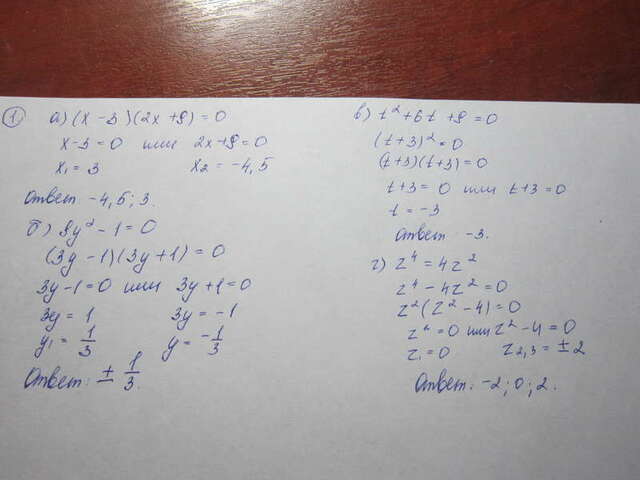 1 а) (x - 3)(2x + 9) = 0
x - 3 = 0 или 2x + 9 = 0
x₁ = 3 x₂ = -4,5
Ответ -4,5; 3.
б) 9y² - 1 = 0
(3y - 1)(3y + 1) = 0
3y - 1 = 0 или 3y + 1 = 0
3y = 1 3y = -1
y₁ = 1/3 y = -1/3
Ответ: ± 1/3.
в) t² + 6t + 9 = 0
(t + 3)² = 0
(t + 3)(t + 3) = 0
t + 3 = 0 или t + 3 = 0
t = -3
Ответ -3.
г) z⁴ = 4z²
z⁴ - 4z² = 0
z²(z² - 4) = 0
z² = 0 или z² - 4 = 0
z₁ = 0 z₂,₃ = ± 2
Ответ: -2; 0; 2.